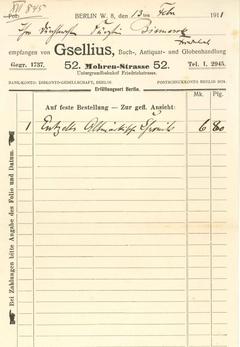 XII 845
Fol.
BERLIN W. 8, den 13ten Febr 1911
Ihre Durchlaucht Fürstin Bismarck
Friedrichsruh
empfangen von Gsellius, Buch-, Antiquar- und Globenhandlung
Gegr. 1737. 52. Mohren-Strasse 52. Tel. I. 2945.
Untergrundbahnhof Friedrichstrasse.
BANK-KONTO: DISKONTO-GESELLSCHAFT, BERLIN. POSTSCHECKKONTO BERLIN
Erfüllungsort Berlin.
Mk. Pfg.
Auf feste Bestellung — Zur gefl. Ansicht:
1 Entzelts Altmärkische Chronik 6 80
Bei Zahlungen bitte Angabe des Folio und Datum.